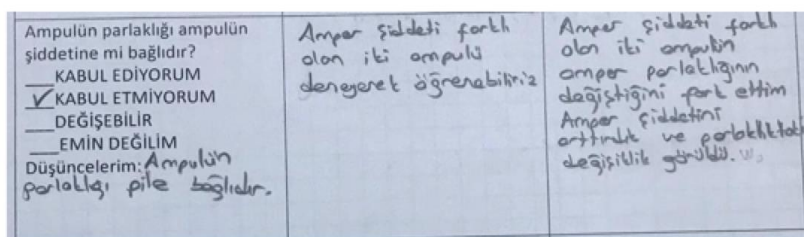 Ampulün parlaklığı ampulün
şiddetine mi bağlıdır?
___KABUL EDİYORUM
_✓_KABUL ETMİYORUM
___DEĞİŞEBİLİR
___EMİN DEĞİLİM
Düşüncelerim: Ampulün
parlaklığı pile bağlıdır.
Amper şiddeti farklı
olan iki ampulü
deneyerek öğrenebiliriz
Amper şiddeti farklı
olan iki ampulün
amper parlaklığının
değiştiğini fark ettim
Amper şiddetini
arttırdık ve parlaklıktaki
değişiklik görüldü.